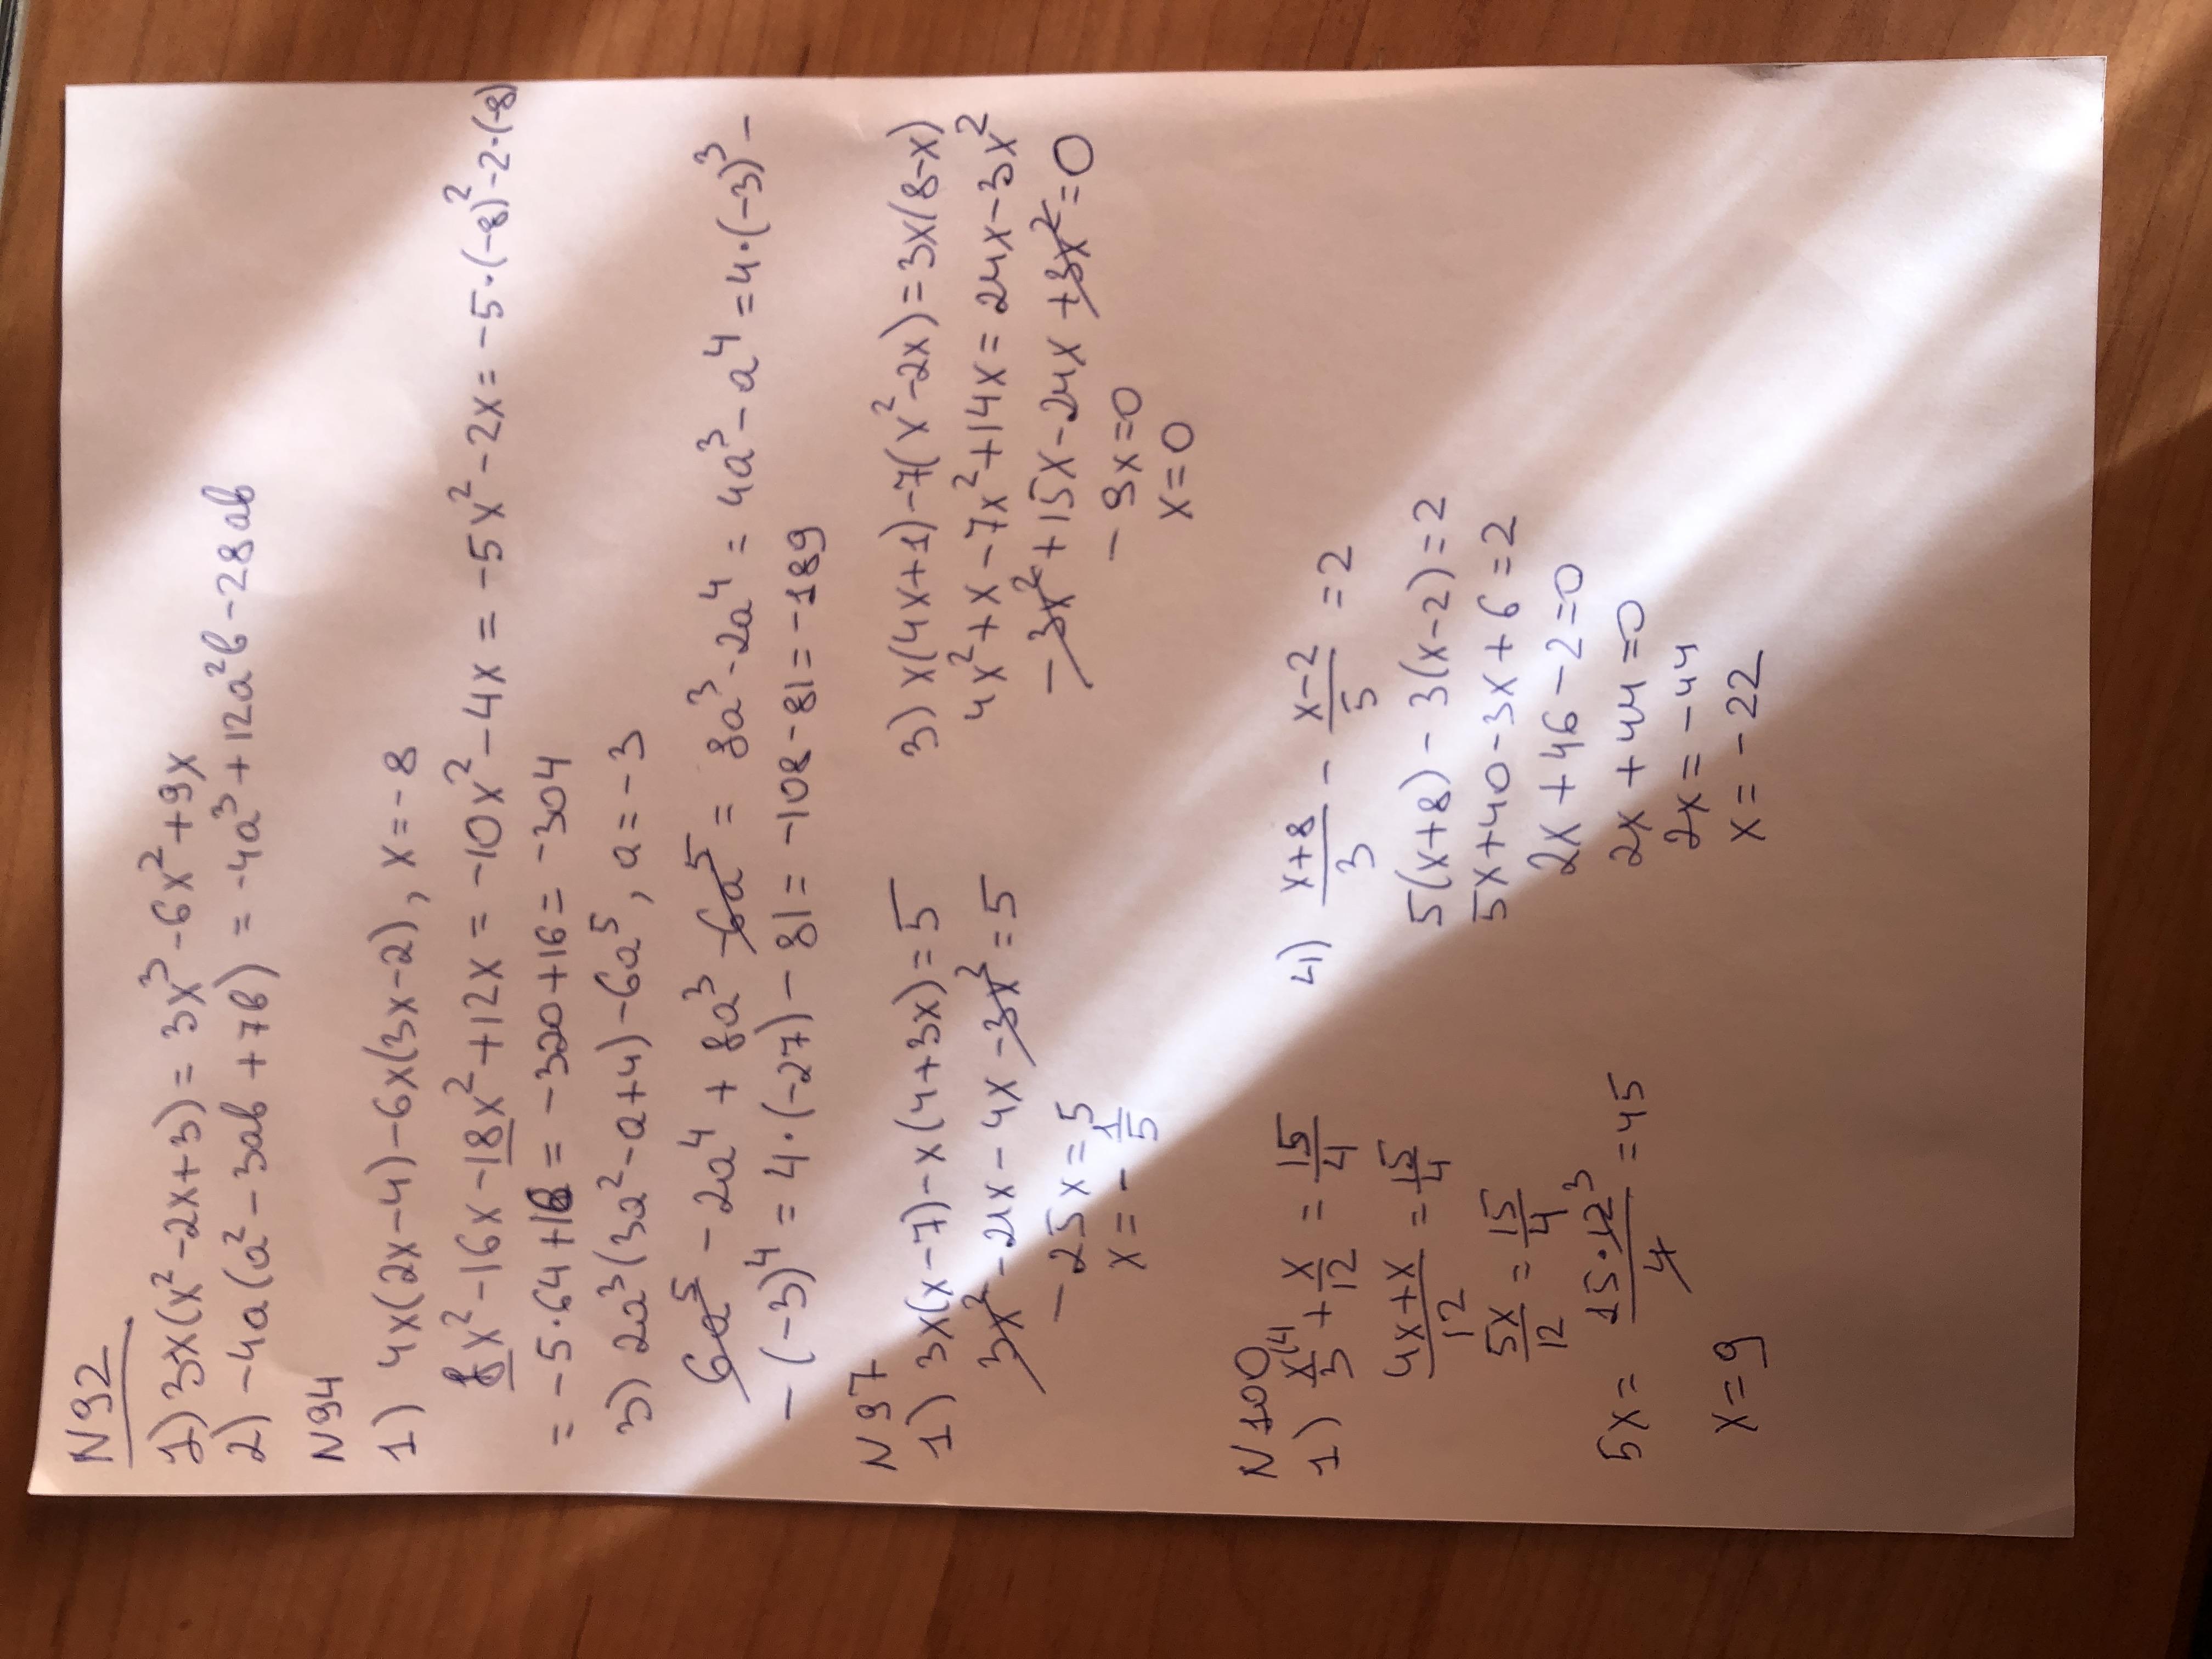 N92
1) 3x(x²-2x+3) = 3x³-6x²+9x
2) -4a(a²-3ab+7b) = -4a³+12a²b-28ab
N94
1) 4x(2x-4)-6x(3x-2), x=-8
8x²-16x-18x²+12x = -10x²-4x = -5x²-2x = -5·(-8)²-2·(-8)
= -5·64+16 = -320+16 = -304
3) 2a³(3a²-a+4)-6a⁵, a=-3
6a⁵-2a⁴+8a³-6a⁵ = 8a³-2a⁴ = 4a³-a⁴ = 4·(-3)³-
-(-3)⁴ = 4·(-27)-81 = -108-81 = -189
N97
1) 3x(x-7)-x(4+3x)=5
3x²-21x-4x-3x²=5
-25x=5
x=-1/5
3) x(4x+1)-7(x²-2x)=3x(8-x)
4x²+x-7x²+14x=24x-3x²
-3x²+15x-24x+3x²=0
-9x=0
x=0
N100
1) x/3⁽⁴+x/12=15/4
4x+x/12=15/4
5x/12=15/4
5x=15·12³/4=45
x=9
4) x+8/3-x-2/5=2
5(x+8)-3(x-2)=2
5x+40-3x+6=2
2x+46-2=0
2x+44=0
2x=-44
x=-22